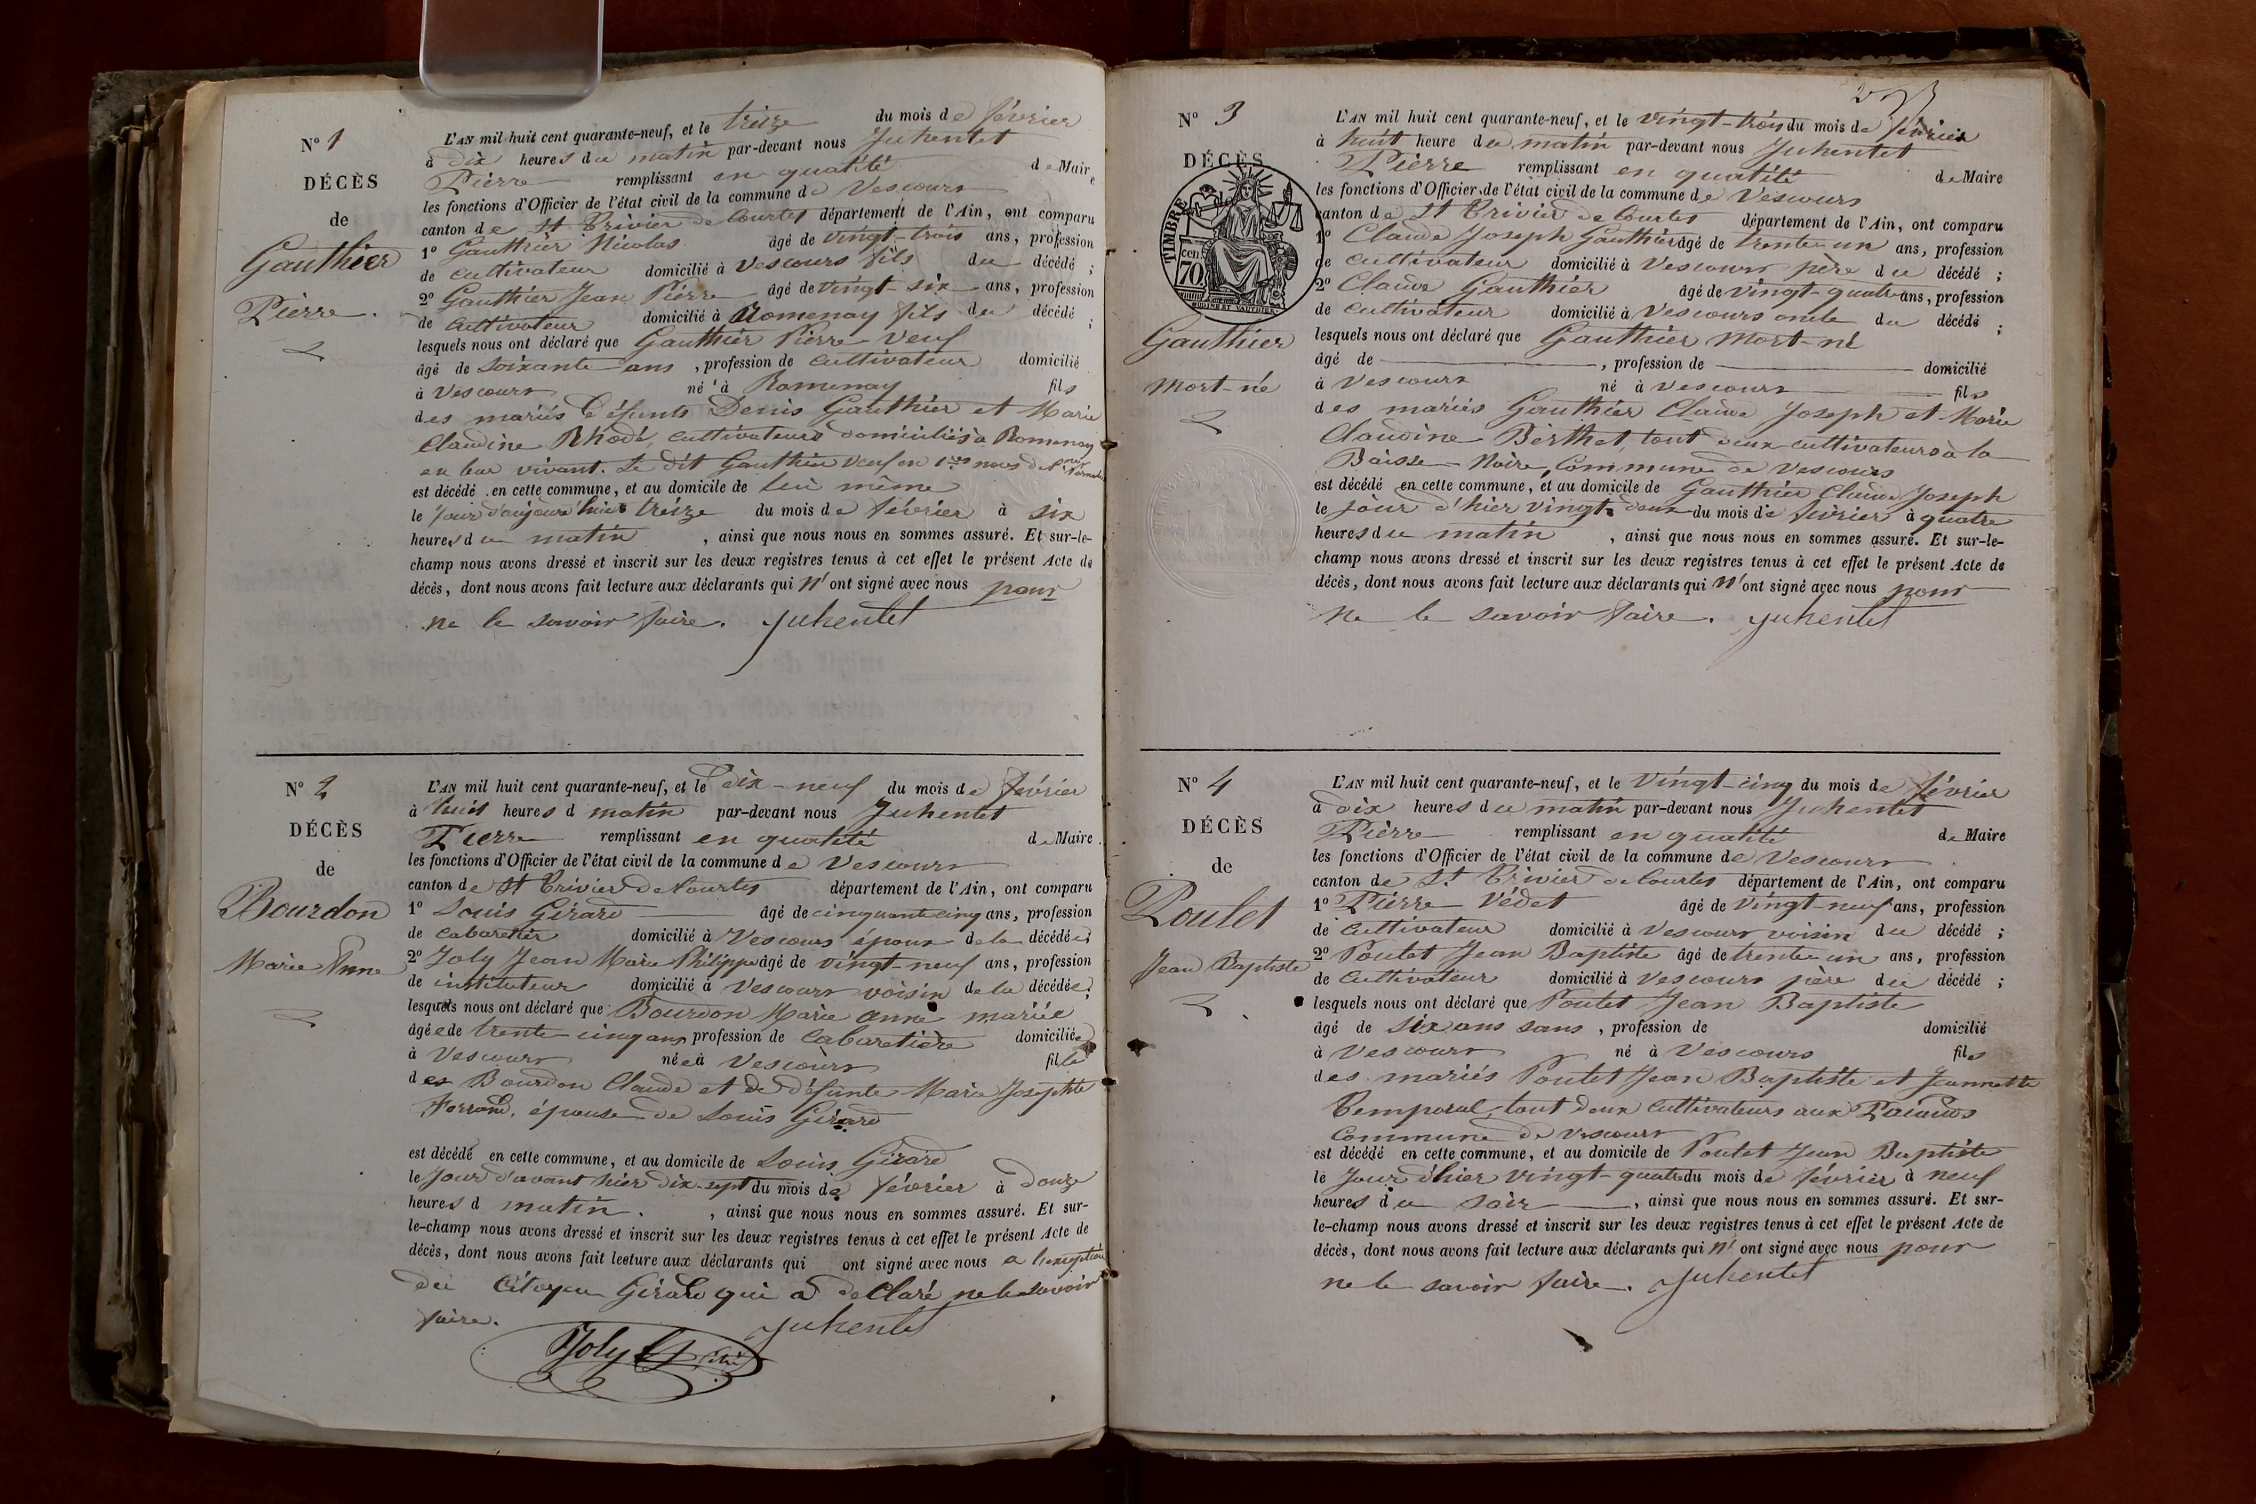 N° 1
DÉCÈS
de
Gauthier
Pierre.
L'AN mil huit cent quarante-neuf, et le treize du mois de février
à dix heures du matin par-devant nous Juhentet
Pierre remplissant en qualité de Maire
les fonctions d'Officier de l'état civil de la commune de Vescours
canton de St Trivier de Courtes département de l'Ain, ont comparu
1° Gauthier Nicolas âgé de vingt-trois ans, profession
de cultivateur domicilié à Vescours fils du décédé ;
2° Gauthier Jean Pierre âgé de vingt-six ans, profession
de cultivateur domicilié à Romenay fils du décédé ;
lesquels nous ont déclaré que Gauthier Pierre veuf
âgé de soixante ans , profession de cultivateur domicilié
à Vescours né à Romenay fils
des mariés défunts Denis Gauthier et Marie
Claudine Rhodé, cultivateurs domiciliés à Romenay
en leur vivant. Le dit Gauthier veuf en 1res noces de
est décédé en cette commune, et au domicile de lui même
le jour d'aujourd'hui treize du mois de février à six
heures du matin , ainsi que nous nous en sommes assuré. Et sur-le-
champ nous avons dressé et inscrit sur les deux registres tenus à cet effet le présent Acte de
décès, dont nous avons fait lecture aux déclarants qui n'ont signé avec nous pour
ne le savoir faire. Juhentet
N° 2
DÉCÈS
de
Bourdon
Marie Anne
L'AN mil huit cent quarante-neuf, et le dix-neuf du mois de février
à huit heures d matin par-devant nous Juhentet
Pierre remplissant en qualité de Maire
les fonctions d'Officier de l'état civil de la commune de Vescours
canton de St Trivier de Courtes département de l'Ain, ont comparu
1° Louis Girard âgé de cinquante cinq ans, profession
de cabaretier domicilié à Vescours époux de la décédée ;
2° Joly Jean Marie Philippe âgé de vingt-neuf ans, profession
de instituteur domicilié à Vescours voisin de la décédée ;
lesquels nous ont déclaré que Bourdon Marie anne mariée
âgée de trente-cinq ans profession de cabaretière domiciliée
à Vescours née à Vescours fille
des Bourdon Claude et de défunte Marie Josephte
Ferrand, épouse de Louis Girard
est décédé en cette commune, et au domicile de Louis Girard
le Jour d'avant hier dix-sept du mois de février à douze
heures d matin. , ainsi que nous nous en sommes assuré. Et sur-
le-champ nous avons dressé et inscrit sur les deux registres tenus à cet effet le présent Acte de
décès, dont nous avons fait lecture aux déclarants qui ont signé avec nous a l'exception
du Citoyen Girard qui a déclaré ne le savoir
faire. Juhentet
Joly
N° 3
DÉCÈS
TIMBRE
cen.
70
Gauthier
Mort-né
L'AN mil huit cent quarante-neuf, et le vingt-trois du mois de février
à huit heure du matin par-devant nous Juhentet
Pierre remplissant en qualité de Maire
les fonctions d'Officier de l'état civil de la commune de Vescours
canton de St Trivier de Courtes département de l'Ain, ont comparu
1° Claude Joseph Gauthier âgé de trente-un ans, profession
de cultivateur domicilié à Vescours père du décédé ;
2° Claude Gauthier âgé de vingt-quatre ans, profession
de cultivateur domicilié à Vescours oncle du décédé ;
lesquels nous ont déclaré que Gauthier Mort-né
âgé de , profession de domicilié
à Vescours né à Vescours fils
des mariés Gauthier Claude Joseph et Marie
Claudine Berthet, tout deux cultivateurs à la
Baisse-Noire, Commune de Vescours
est décédé en cette commune, et au domicile de Gauthier Claude Joseph
le jour d'hier vingt-deux du mois de février à quatre
heures du matin , ainsi que nous nous en sommes assuré. Et sur-le-
champ nous avons dressé et inscrit sur les deux registres tenus à cet effet le présent Acte de
décès, dont nous avons fait lecture aux déclarants qui n'ont signé avec nous pour
ne le savoir faire. Juhentet
N° 4
DÉCÈS
de
Poulet
Jean Baptiste
L'AN mil huit cent quarante-neuf, et le vingt-cinq du mois de février
à dix heures du matin par-devant nous Juhentet
Pierre remplissant en qualité de Maire
les fonctions d'Officier de l'état civil de la commune de Vescours
canton de St. Trivier de Courtes département de l'Ain, ont comparu
1° Pierre Védet âgé de vingt-neuf ans, profession
de cultivateur domicilié à Vescours voisin du décédé ;
2° Poulet Jean Baptiste âgé de trente-un ans, profession
de cultivateur domicilié à Vescours père du décédé ;
lesquels nous ont déclaré que Poulet Jean Baptiste
âgé de six ans sans , profession de domicilié
à Vescours né à Vescours fils
des mariés Poulet Jean Baptiste et Jeannette
Temporal, tout deux cultivateurs aux
Commune de Vescours
est décédé en cette commune, et au domicile de Poulet Jean Baptiste
le Jour d'hier vingt-quatre du mois de février à neuf
heures du soir , ainsi que nous nous en sommes assuré. Et sur-
le-champ nous avons dressé et inscrit sur les deux registres tenus à cet effet le présent Acte de
décès, dont nous avons fait lecture aux déclarants qui n'ont signé avec nous pour
ne le savoir faire. Juhentet